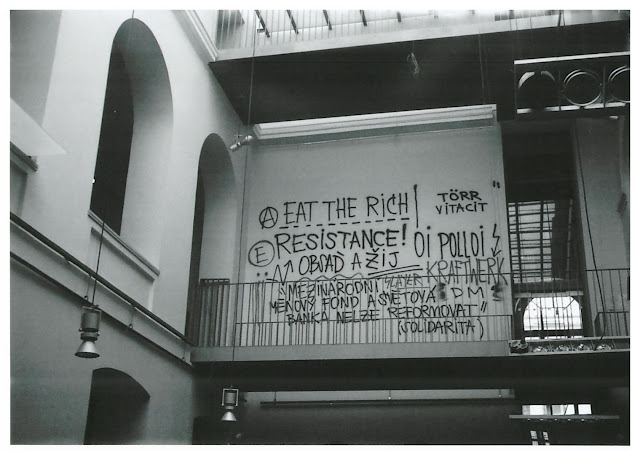 Ⓐ EAT THE RICH
TÖRR
VITACIT
Ⓔ RESISTANCE! OI POLLOI
OBSAĎ A ŽIJ
SLAYER KRAFTWERK
"MEZINÁRODNÍ
MĚNOVÝ FOND A SVĚTOVÁ DM
BANKA NELZE REFORMOVAT"
(SOLIDARITA)